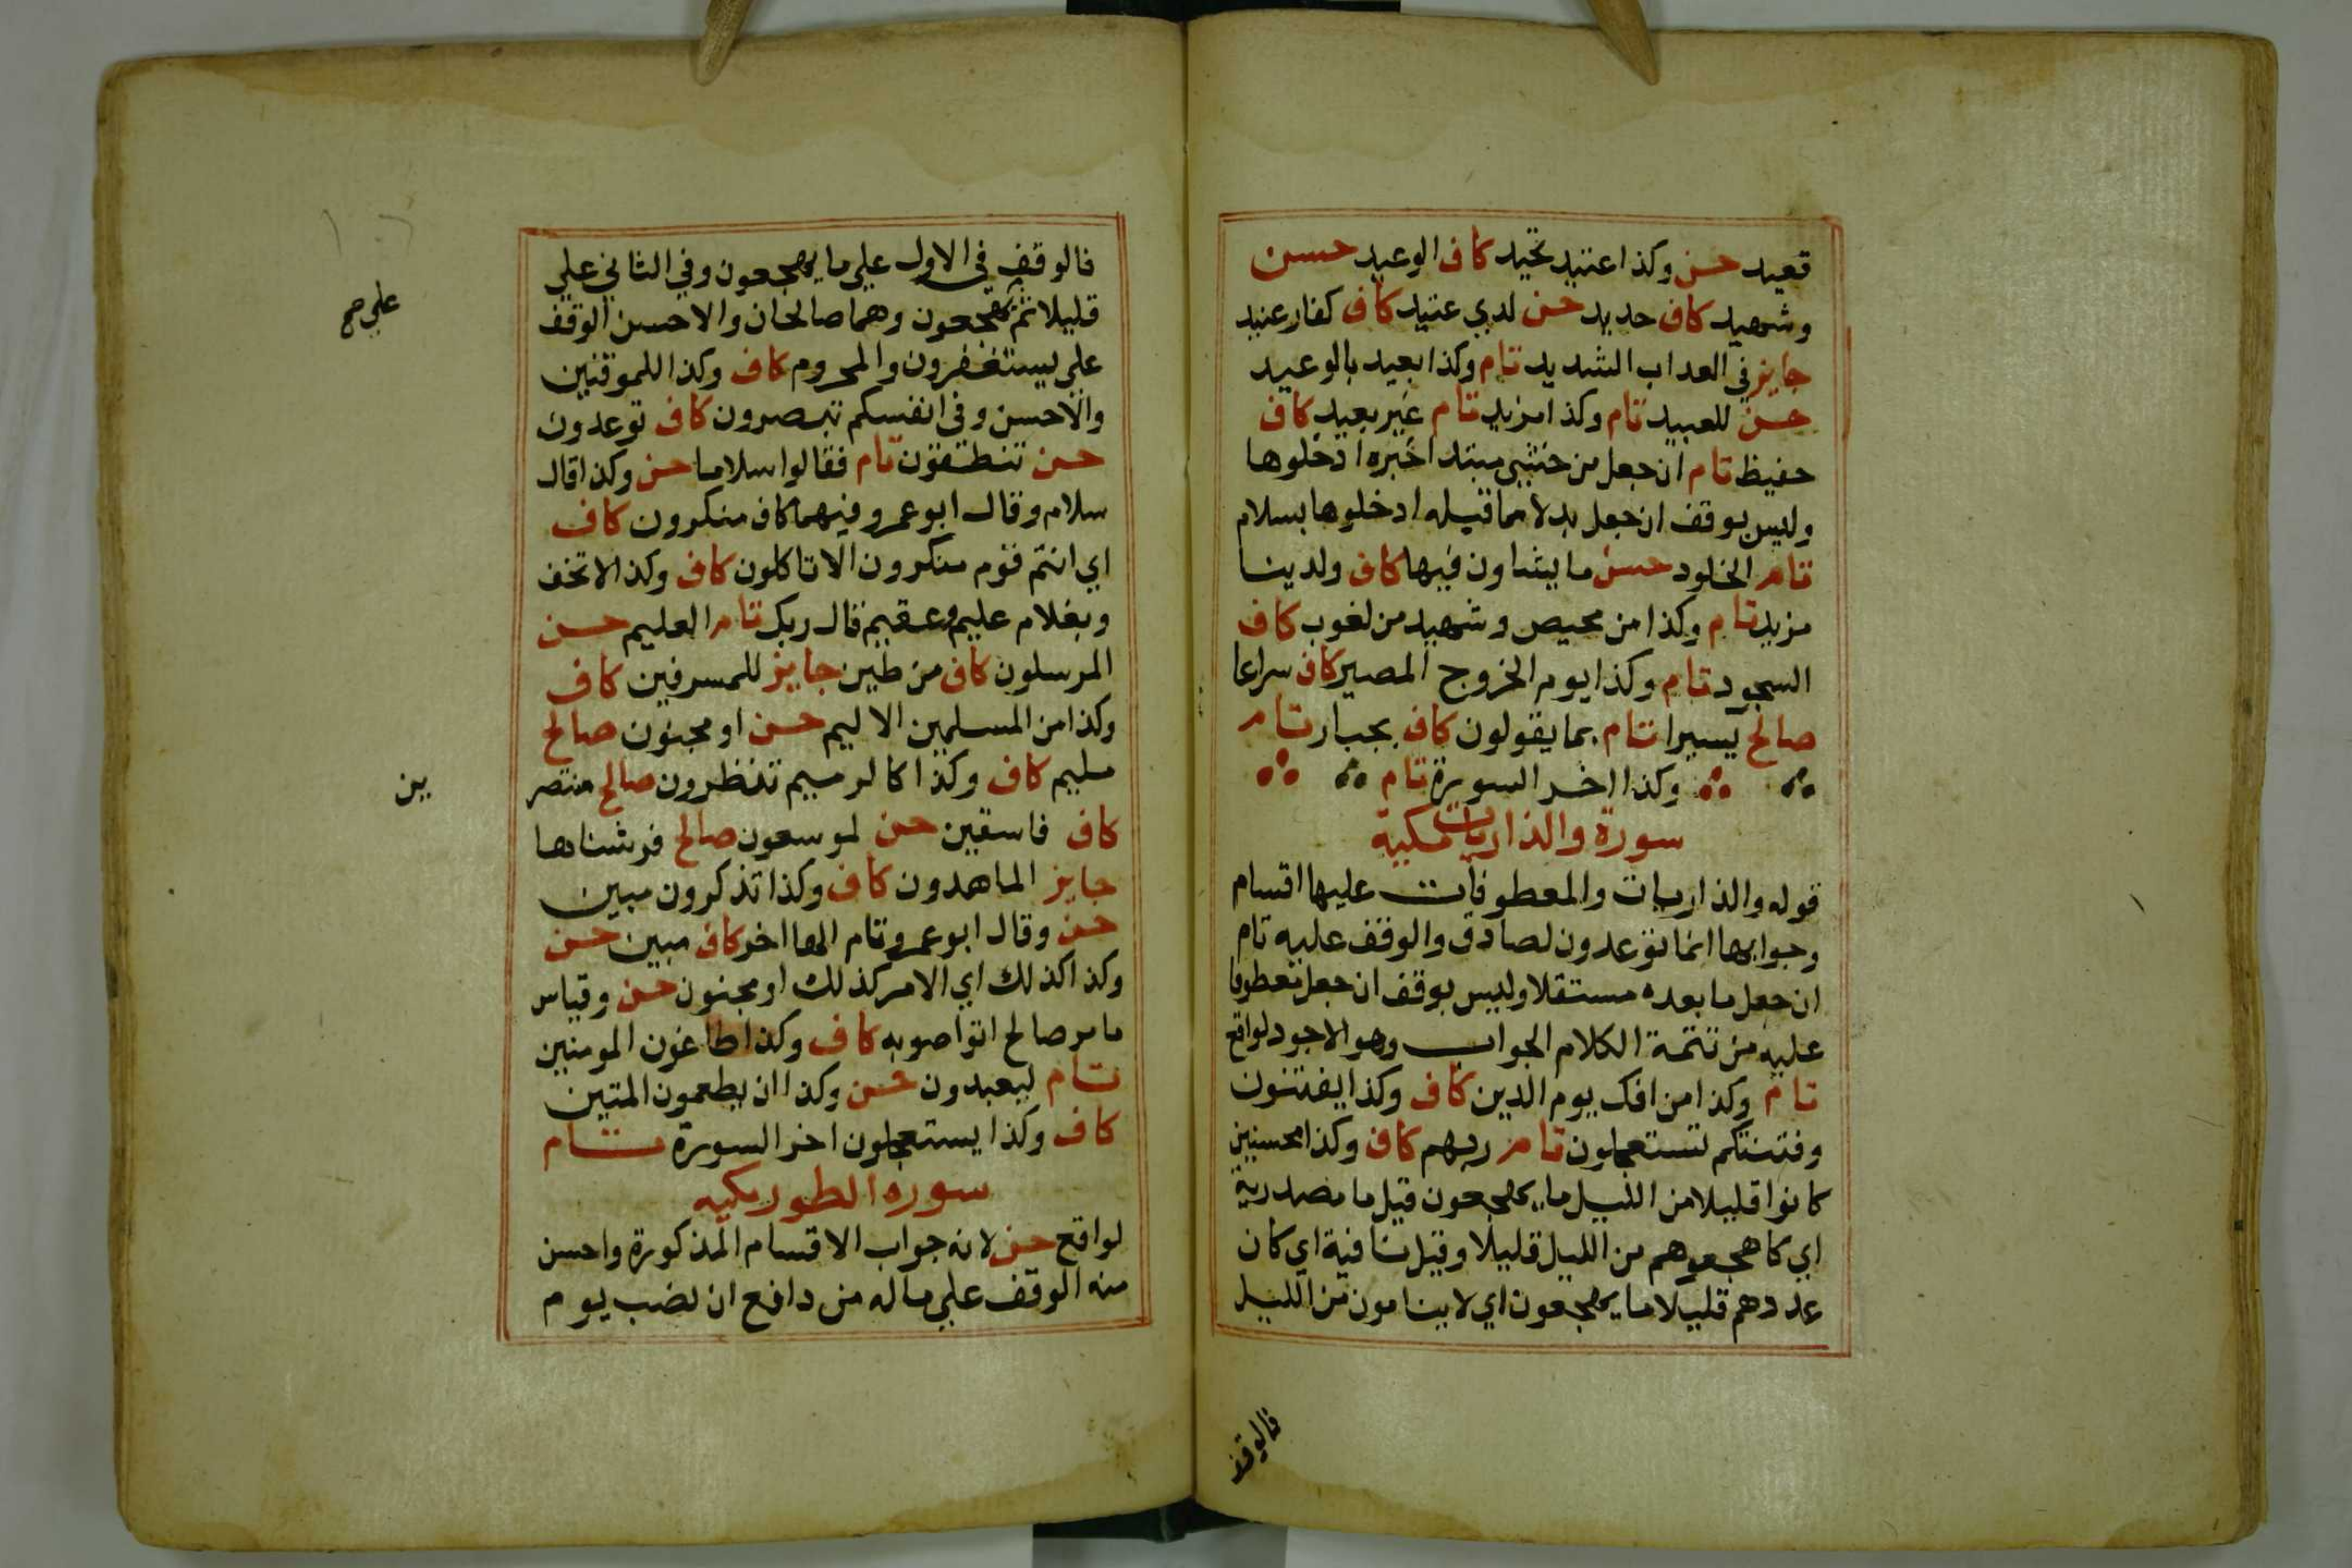 قعيد حسن وكذا عتيد تحيد كاف الوعيد حسن
وشهيد كاف حديد حسن لدي عتيد كاف كفار عنيد
جايز في العداب الشديد تام وكذا بعيد بالوعيد
حسن للعبيد تام وكذا مزيد تام غير بعيد كاف
حفيظ تام ان جعل من خشي مبتدا خبره ادخلوها
وليس بوقف ان جعل بدلا مما قبله ادخلوها بسلام
تام الخلود حسن ما يشاون فيها كاف ولدينا
مزيد تام وكذا من محيص وشهيد من لغوب كاف
السجود تام وكذا يوم الخروج المصير كاف سراعا
صالح يسيرا تام بما يقولون كاف بجبار تام
وكذا اخر السورة تام
سورة والذاريات مكية
قوله والذاريات والمعطوفات عليها اقسام
وجوابها انما توعدون لصادق والوقف عليه تام
ان جعل ما بعده مستقلا وليس بوقف ان جعل معطوفا
عليه من تتمة الكلام الجواب وهو الاجود لواقع
تام وكذا من افك يوم الدين كاف وكذا يفتنون
وفتنتكم تستعجلون تام ربهم كاف وكذا محسنين
كانوا قليلا من الليل ما يهجعون قيل ما مصدرية
اي كا هجعوهم من الليل قليلا وقيل نافية اي كان
عددهم قليلا ما يهجعون اي لا ينامون من الليل
فالوقف
فالوقف في الاول علي ما يهجعون وفي الثاني علي
قليلا ثم يهجعون وهما صالحان والاحسن الوقف
علي صح
علي يستغفرون والمحروم كاف وكذا للموقنين
والاحسن وفي انفسكم تبصرون كاف توعدون
حسن تنطقون تام فقالوا سلاما حسن وكذا قال
سلام وقال ابو عمرو فيهما كاف منكرون كاف
اي انتم قوم منكرون الا تاكلون كاف وكذا لا تخف
وبغلام عليم وعقيم قال ربك تام العليم حسن
المرسلون كاف من طين جايز للمسرفين كاف
وكذا من المسلمين الاليم حسن او مجنون صالح
مليم كاف وكذا كالرميم تنظرون صالح منتصر
ين
كاف فاسقين حسن لموسعون صالح فرشناها
جايز الماهدون كاف وكذا تذكرون مبين
حسن وقال ابو عمرو تام الها اخر كاف مبين حسن
وكذا كذلك اي الامر كذلك او مجنون حسن وقياس
ما مر صالح اتواصوا به كاف وكذا طاغون المومنين
تام ليعبدون حسن وكذا ان يطعمون المتين
كاف وكذا يستعجلون اخر السورة تام
سوره الطور مكيه
لواقع حسن لانه جواب الاقسام المذكورة واحسن
منه الوقف علي ماله من دافع ان نصب يوم